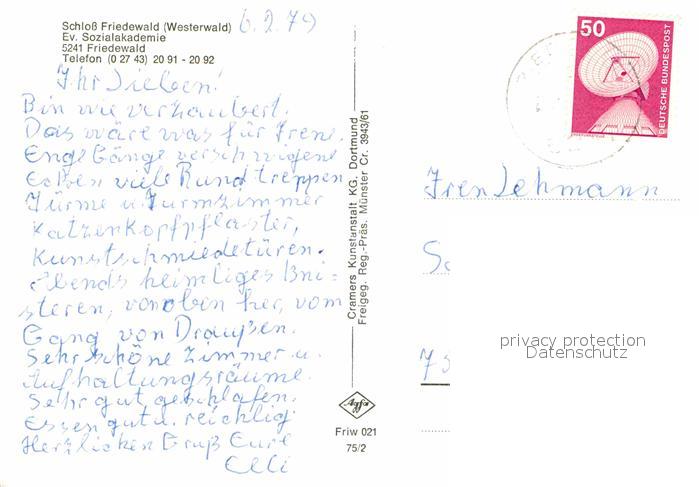 Schloß Friedewald (Westerwald)
Ev. Sozialakademie
5241 Friedewald
Telefon (0 27 43) 20 91 - 20 92
6.2.79
Ihr Lieben!
Bin wie verzaubert.
Das wäre was für Irene.
Enge Gänge verschwiegene
Ecken viele Rundtreppen
Türme u. Turmzimmer
Katzenkopfpflaster,
Kunstschmiedetüren.
Abends heimliges Kni-
steren, von oben her, vom
Gang von Draußen.
Sehr schöne Zimmer u.
Aufhaltungsräume.
Sehr gut geschlafen.
Essen gut u. reichlig
Herzlichen Gruß Eure
Cramers Kunstanstalt KG, Dortmund
Freigeg. Reg.-Präs. Münster Cr. 3943/61
Agfa
Friw 021
75/2
50
DEUTSCHE BUNDESPOST
Lehmann
privacy protection
Datenschutz